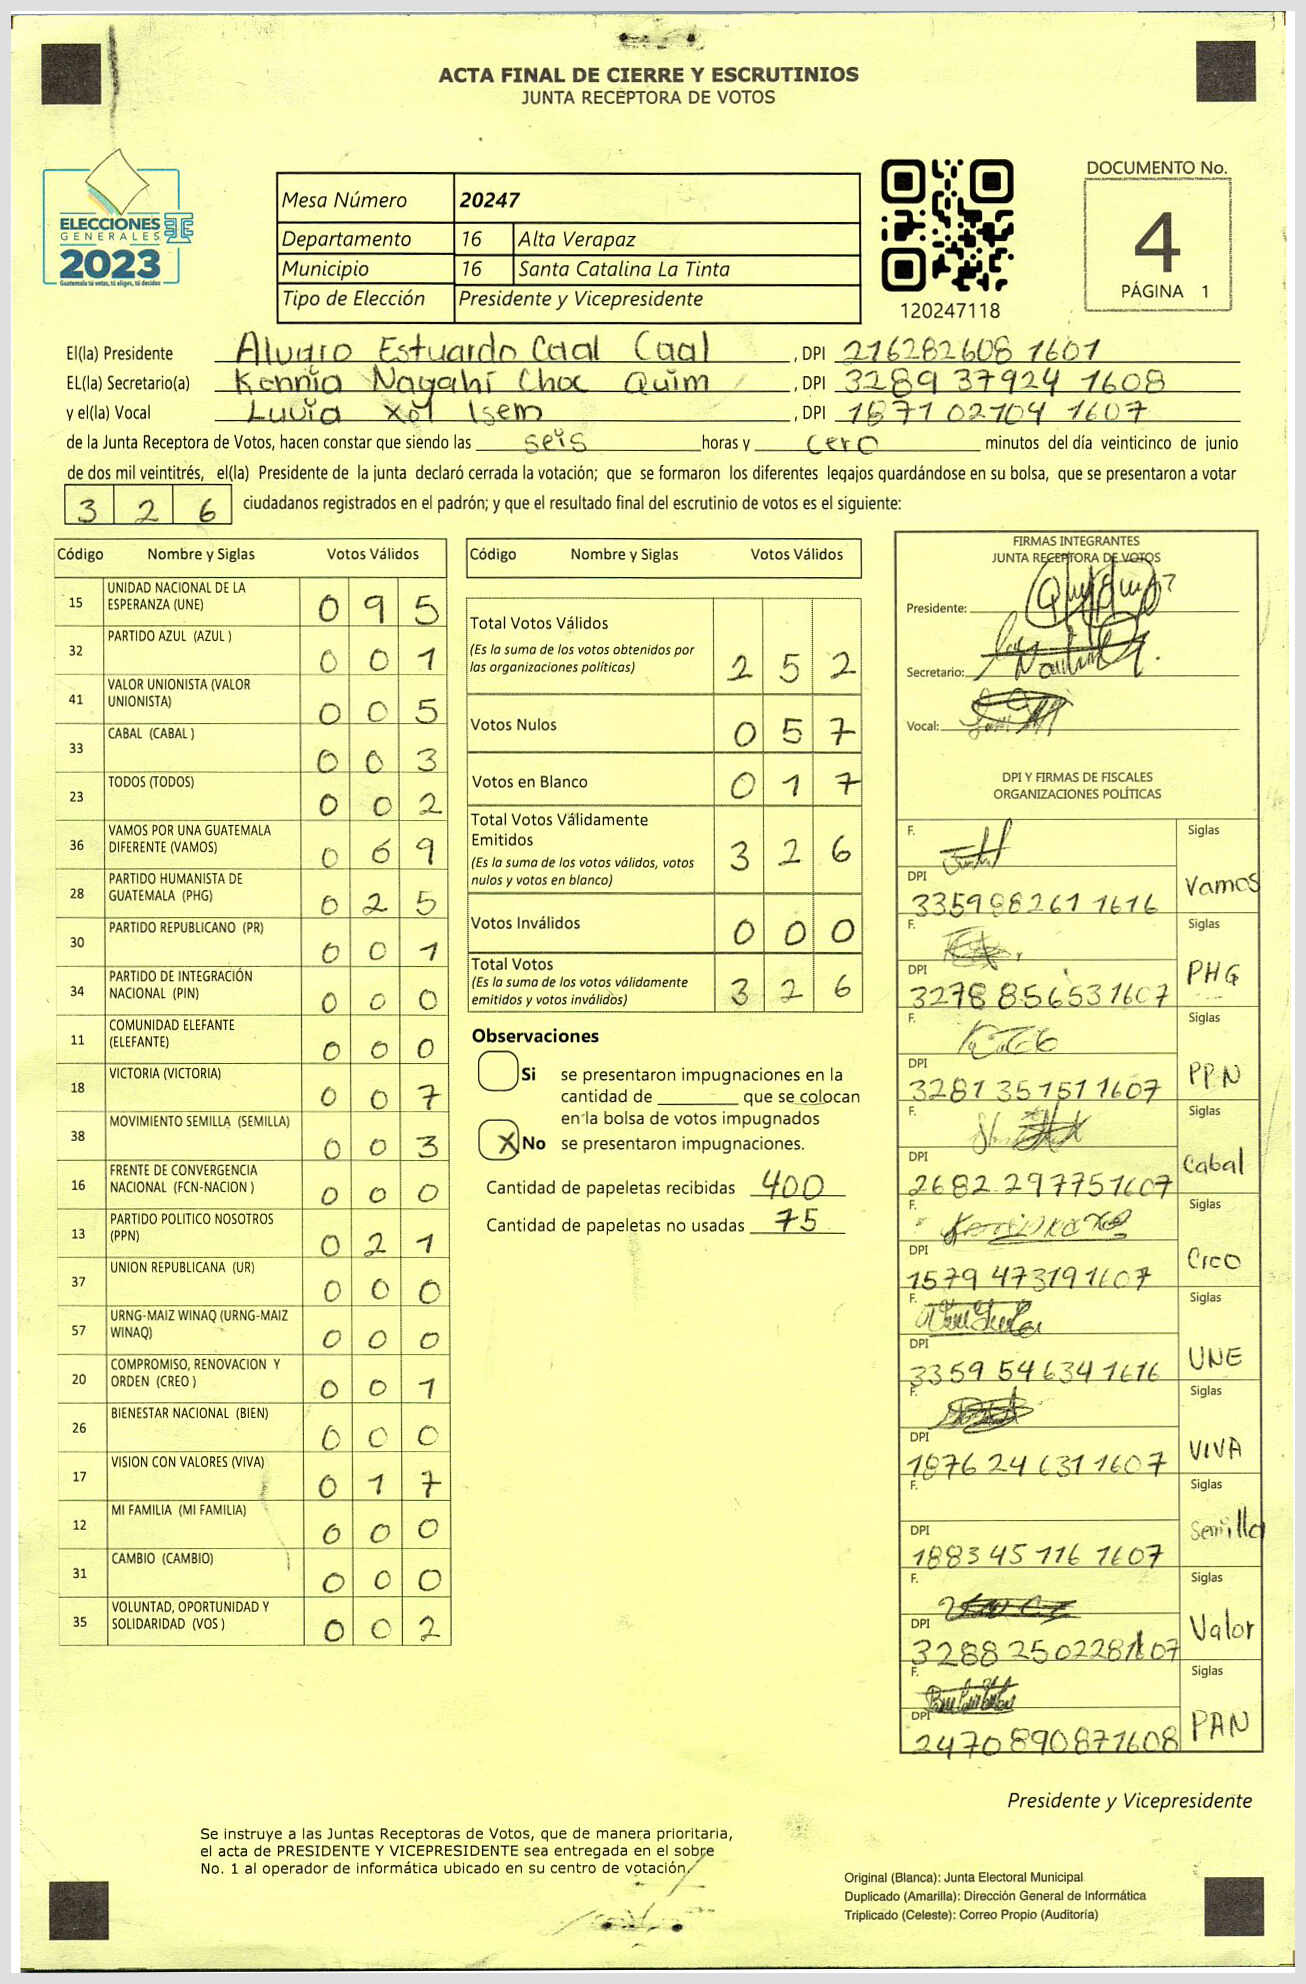 ACTA FINAL DE CIERRE Y ESCRUTINIOS
JUNTA RECEPTORA DE VOTOS
ELECCIONES
GENERALES
2023
Guatemala tú votas, tú eliges, tú decides
Mesa Número 20247
Departamento 16 Alta Verapaz
Municipio 16 Santa Catalina La Tinta
Tipo de Elección Presidente y Vicepresidente
120247118
DOCUMENTO No.
4
PÁGINA 1
El(la) Presidente Alvaro Estuardo Caal Caal , DPI 216282608 1601
EL(la) Secretario(a) Kennia Nayahi Choc Quim , DPI 3289 37924 1608
y el(la) Vocal Luvia Xol Isem , DPI 1871 02104 1607
de la Junta Receptora de Votos, hacen constar que siendo las seis horas y cero minutos del día veinticinco de junio
de dos mil veintitrés, el(la) Presidente de la junta declaró cerrada la votación; que se formaron los diferentes legajos quardándose en su bolsa, que se presentaron a votar
3 2 6 ciudadanos registrados en el padrón; y que el resultado final del escrutinio de votos es el siguiente:
Código Nombre y Siglas Votos Válidos
15 UNIDAD NACIONAL DE LA ESPERANZA (UNE) 0 9 5
32 PARTIDO AZUL (AZUL ) 0 0 1
41 VALOR UNIONISTA (VALOR UNIONISTA) 0 0 5
33 CABAL (CABAL ) 0 0 3
23 TODOS (TODOS) 0 0 2
36 VAMOS POR UNA GUATEMALA DIFERENTE (VAMOS) 0 6 9
28 PARTIDO HUMANISTA DE GUATEMALA (PHG) 0 2 5
30 PARTIDO REPUBLICANO (PR) 0 0 1
34 PARTIDO DE INTEGRACIÓN NACIONAL (PIN) 0 0 0
11 COMUNIDAD ELEFANTE (ELEFANTE) 0 0 0
18 VICTORIA (VICTORIA) 0 0 7
38 MOVIMIENTO SEMILLA (SEMILLA) 0 0 3
16 FRENTE DE CONVERGENCIA NACIONAL (FCN-NACION ) 0 0 0
13 PARTIDO POLITICO NOSOTROS (PPN) 0 2 1
37 UNION REPUBLICANA (UR) 0 0 0
57 URNG-MAIZ WINAQ (URNG-MAIZ WINAQ) 0 0 0
20 COMPROMISO, RENOVACION Y ORDEN (CREO ) 0 0 1
26 BIENESTAR NACIONAL (BIEN) 0 0 0
17 VISION CON VALORES (VIVA) 0 1 7
12 MI FAMILIA (MI FAMILIA) 0 0 0
31 CAMBIO (CAMBIO) 0 0 0
35 VOLUNTAD, OPORTUNIDAD Y SOLIDARIDAD (VOS ) 0 0 2
Código Nombre y Siglas Votos Válidos
Total Votos Válidos 2 5 2
(Es la suma de los votos obtenidos por
las organizaciones políticas)
Votos Nulos 0 5 7
Votos en Blanco 0 1 7
Total Votos Válidamente
Emitidos 3 2 6
(Es la suma de los votos válidos, votos
nulos y votos en blanco)
Votos Inválidos 0 0 0
Total Votos
(Es la suma de los votos válidamente
emitidos y votos inválidos) 3 2 6
Observaciones
Si se presentaron impugnaciones en la
cantidad de ________ que se colocan
en la bolsa de votos impugnados
X No se presentaron impugnaciones.
Cantidad de papeletas recibidas 400
Cantidad de papeletas no usadas 75
FIRMAS INTEGRANTES
JUNTA RECEPTORA DE VOTOS
Presidente:
Secretario:
Vocal:
DPI Y FIRMAS DE FISCALES
ORGANIZACIONES POLÍTICAS
F. Siglas
DPI Vamos
335998261 1616
F. Siglas
DPI PHG
3278 856531607
F. Siglas
DPI PPN
3281 35151 1607
F. Siglas
DPI Cabal
2682 297751607
F. Siglas
DPI Creo
1579 473191607
F. Siglas
DPI UNE
3359 54634 1616
F. Siglas
DPI VIVA
1876 24631 1607
F. Siglas
DPI Semilla
1883 45 116 1607
F. Siglas
DPI Valor
3288 2502281607
F. Siglas
DPI PAN
2470890871608
Presidente y Vicepresidente
Se instruye a las Juntas Receptoras de Votos, que de manera prioritaria,
el acta de PRESIDENTE Y VICEPRESIDENTE sea entregada en el sobre
No. 1 al operador de informática ubicado en su centro de votación.
Original (Blanca): Junta Electoral Municipal
Duplicado (Amarilla): Dirección General de Informática
Triplicado (Celeste): Correo Propio (Auditoría)